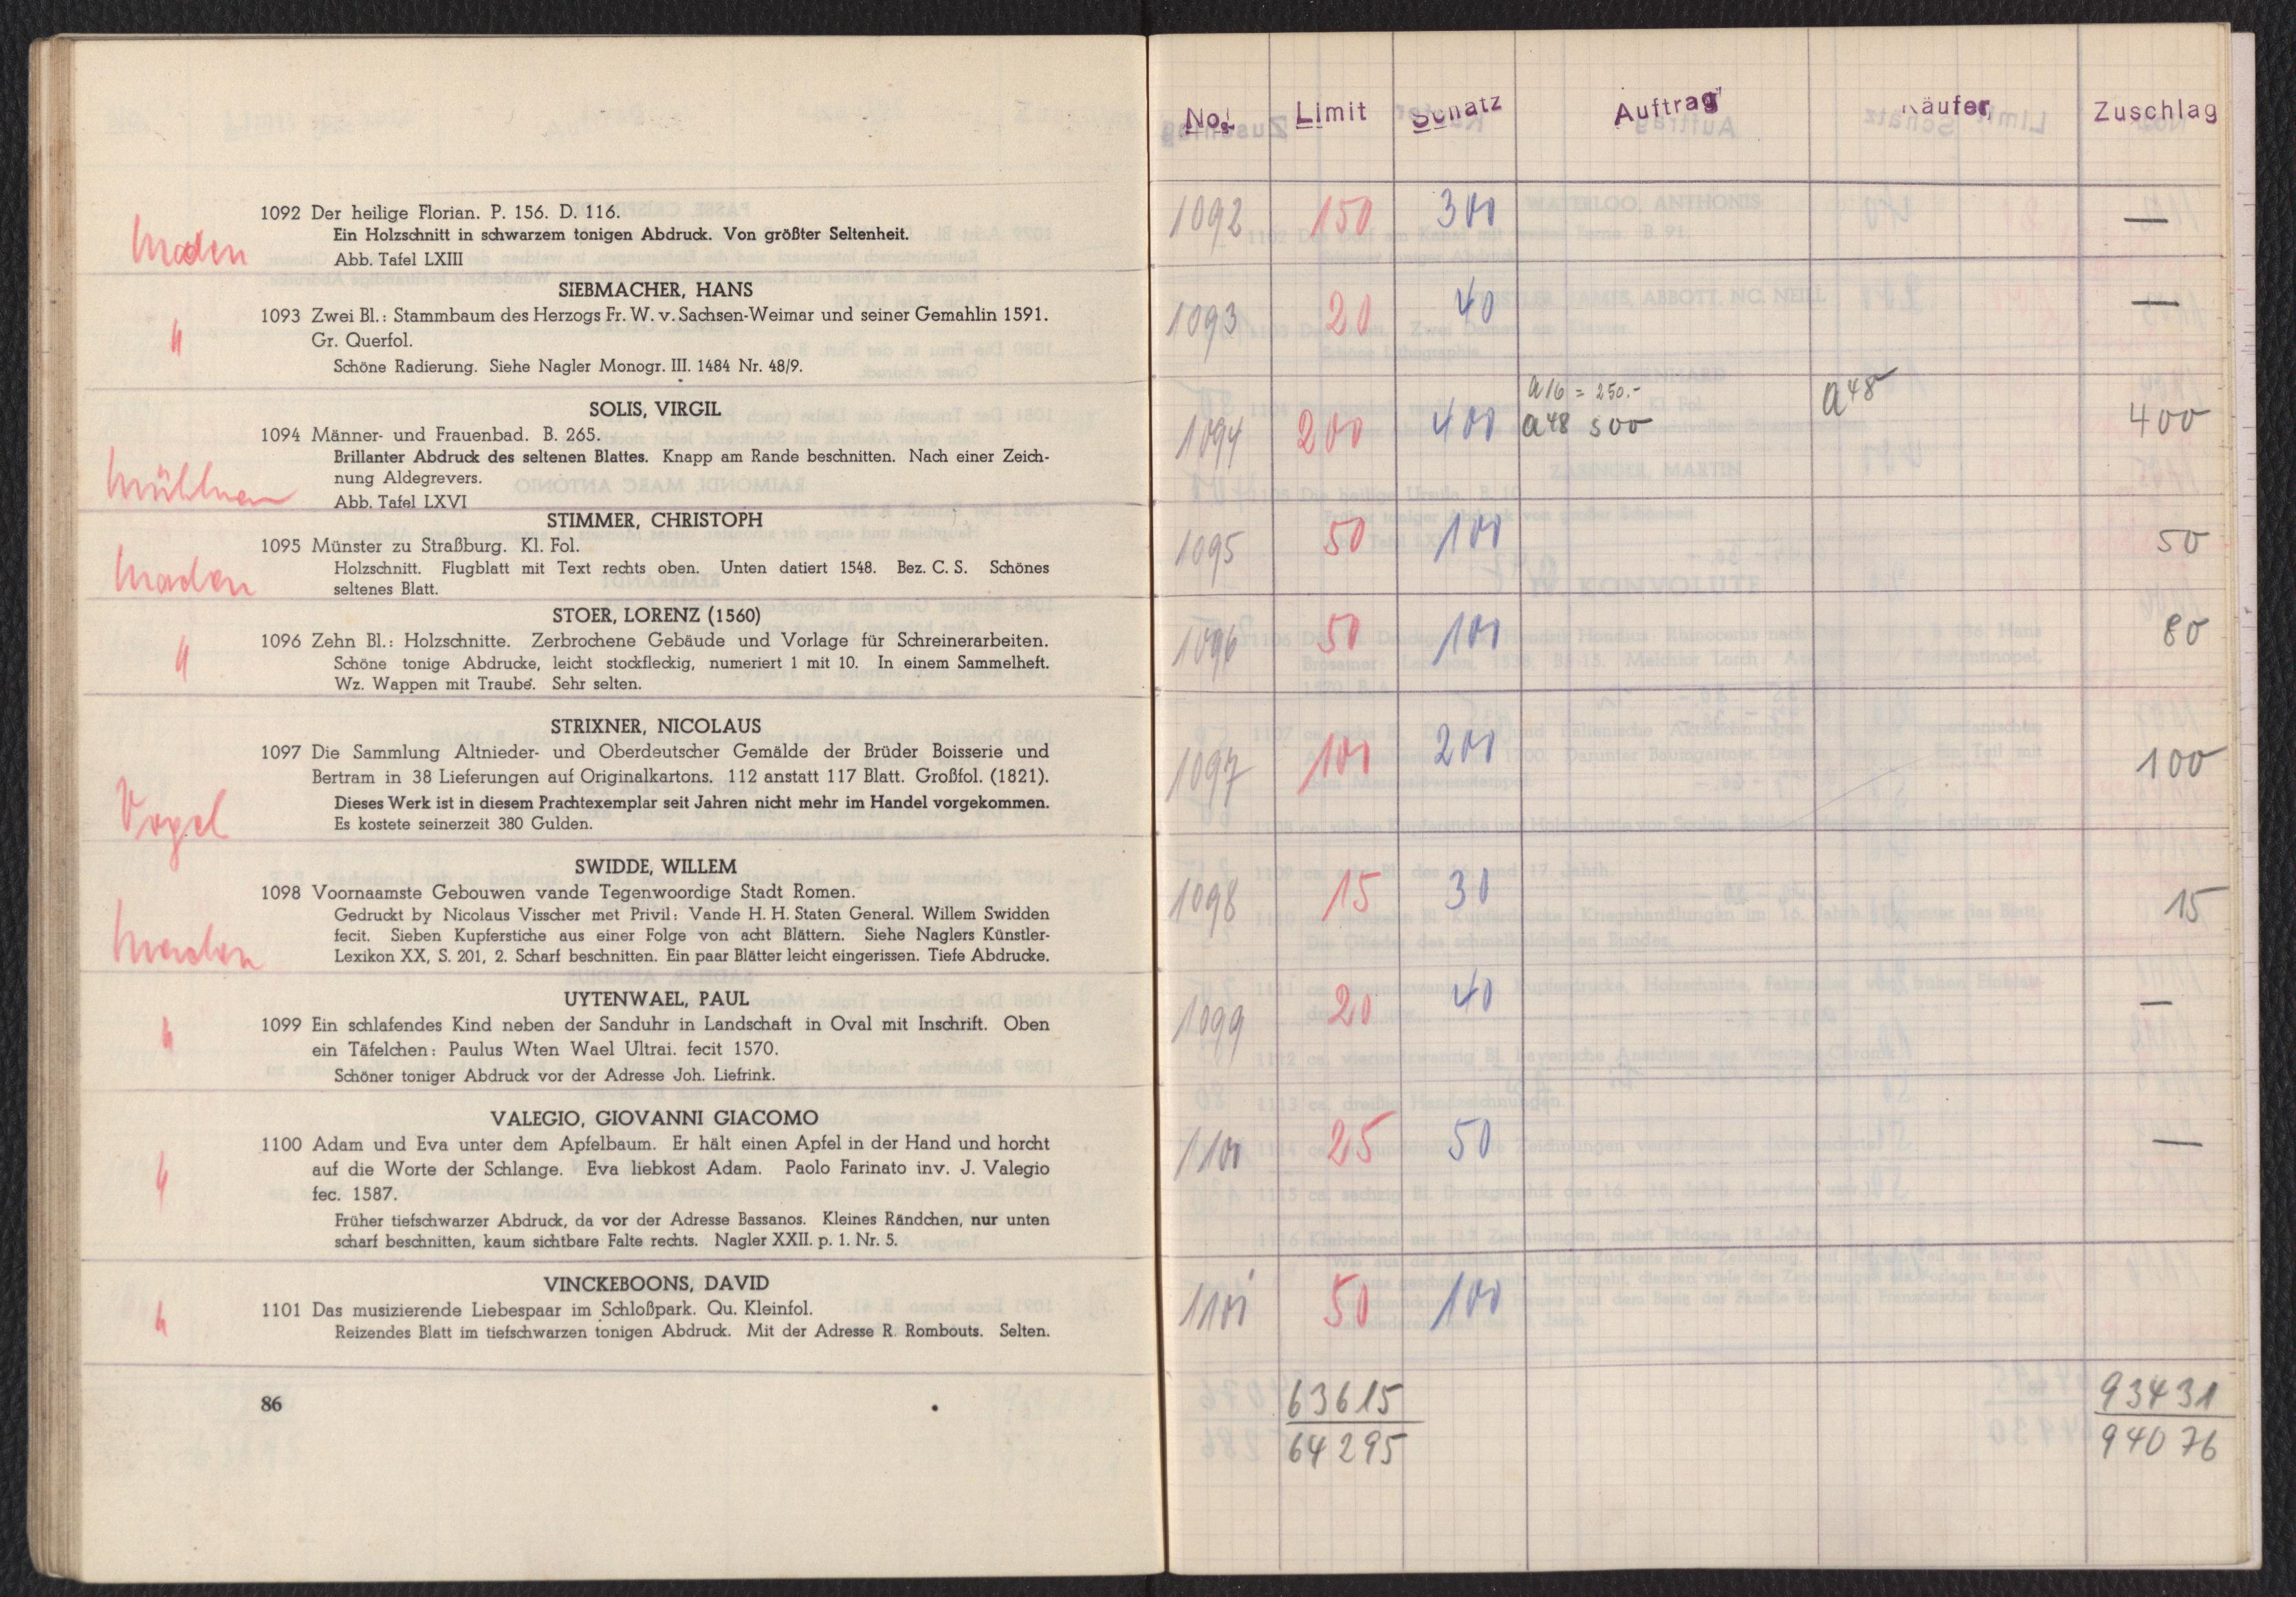 1092 Der heilige Florian. P. 156. D. 116.
Ein Holzschnitt in schwarzem tonigen Abdruck. Von größter Seltenheit.
Abb. Tafel LXIII
SIEBMACHER, HANS
1093 Zwei Bl.: Stammbaum des Herzogs Fr. W. v. Sachsen-Weimar und seiner Gemahlin 1591.
Gr. Querfol.
Schöne Radierung. Siehe Nagler Monogr. III. 1484 Nr. 48/9.
SOLIS, VIRGIL
1094 Männer- und Frauenbad. B. 265.
Brillanter Abdruck des seltenen Blattes. Knapp am Rande beschnitten. Nach einer Zeich-
nung Aldegrevers.
Abb. Tafel LXVI
STIMMER, CHRISTOPH
1095 Münster zu Straßburg. Kl. Fol.
Holzschnitt. Flugblatt mit Text rechts oben. Unten datiert 1548. Bez. C. S. Schönes
seltenes Blatt.
STOER, LORENZ (1560)
1096 Zehn Bl.: Holzschnitte. Zerbrochene Gebäude und Vorlage für Schreinerarbeiten.
Schöne tonige Abdrucke, leicht stockfleckig, numeriert 1 mit 10. In einem Sammelheft.
Wz. Wappen mit Traube. Sehr selten.
STRIXNER, NICOLAUS
1097 Die Sammlung Altnieder- und Oberdeutscher Gemälde der Brüder Boisserie und
Bertram in 38 Lieferungen auf Originalkartons. 112 anstatt 117 Blatt. Großfol. (1821).
Dieses Werk ist in diesem Prachtexemplar seit Jahren nicht mehr im Handel vorgekommen.
Es kostete seinerzeit 380 Gulden.
Vogel
SWIDDE, WILLEM
1098 Voornaamste Gebouwen vande Tegenwoordige Stadt Romen.
Gedruckt by Nicolaus Visscher met Privil: Vande H. H. Staten General. Willem Swidden
fecit. Sieben Kupferstiche aus einer Folge von acht Blättern. Siehe Naglers Künstler-
Lexikon XX, S. 201, 2. Scharf beschnitten. Ein paar Blätter leicht eingerissen. Tiefe Abdrucke.
UYTENWAEL, PAUL
1099 Ein schlafendes Kind neben der Sanduhr in Landschaft in Oval mit Inschrift. Oben
ein Täfelchen: Paulus Wten Wael Ultrai. fecit 1570.
Schöner toniger Abdruck vor der Adresse Joh. Liefrink.
VALEGIO, GIOVANNI GIACOMO
1100 Adam und Eva unter dem Apfelbaum. Er hält einen Apfel in der Hand und horcht
auf die Worte der Schlange. Eva liebkost Adam. Paolo Farinato inv. J. Valegio
fec. 1587.
Früher tiefschwarzer Abdruck, da vor der Adresse Bassanos. Kleines Rändchen, nur unten
scharf beschnitten, kaum sichtbare Falte rechts. Nagler XXII. p. 1. Nr. 5.
VINCKEBOONS, DAVID
1101 Das musizierende Liebespaar im Schloßpark. Qu. Kleinfol.
Reizendes Blatt im tiefschwarzen tonigen Abdruck. Mit der Adresse R. Rombouts. Selten.
86
No. Limit Schatz Auftrag Käufer Zuschlag
1092 150 300 —
1093 20 40 —
a 16 = 250.-
1094 200 400 a 48 500 a 48 400
1095 50 100 50
1096 50 100 80
1097 100 200 100
1098 15 30 15
1099 20 40 —
1100 25 50 —
1101 50 100
63615 93431
64295 94076